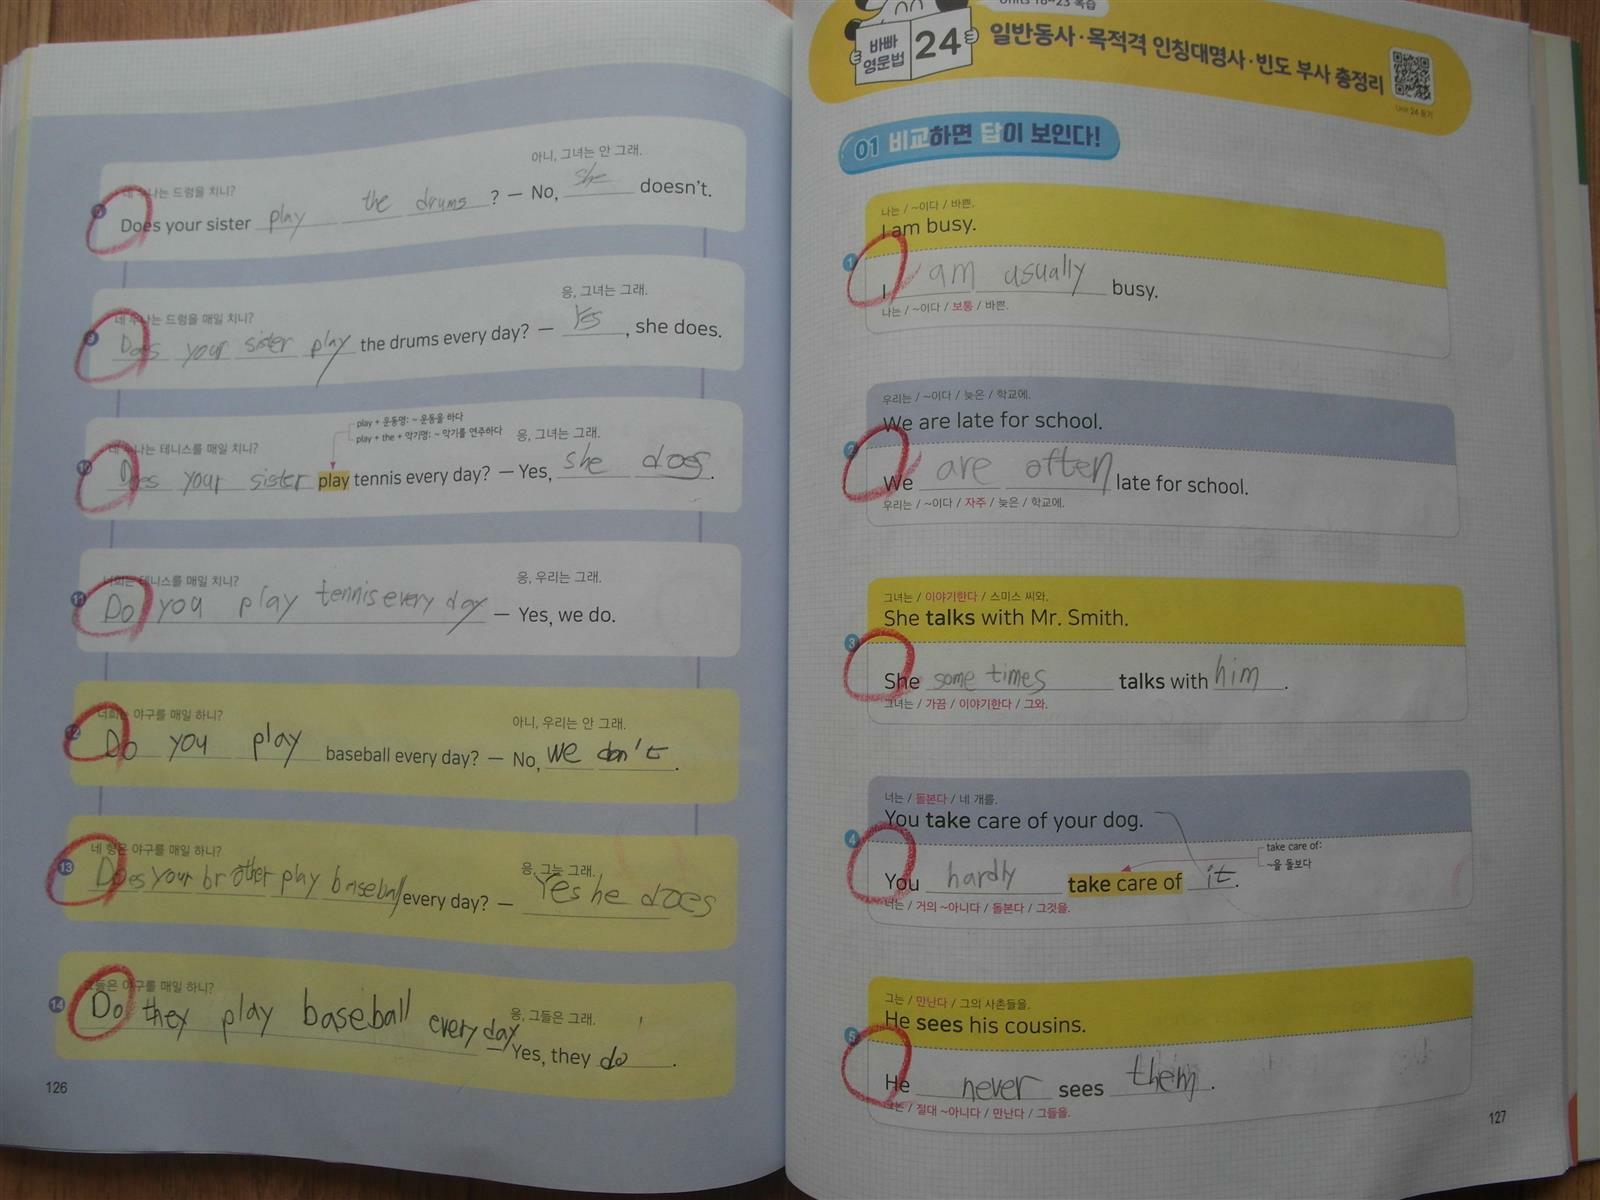 아니, 그녀는 안 그래.
누나는 드럼을 치니?
Does your sister play the drums ? — No, she doesn't.
응, 그녀는 그래.
네 누나는 드럼을 매일 치니?
9
Does your sister play the drums every day? — Yes, she does.
play + 운동명: ~ 운동을 하다
play + the + 악기명: ~ 악기를 연주하다
응, 그녀는 그래.
네 누나는 테니스를 매일 치니?
10
Does your sister play tennis every day? — Yes, she does.
너희는 테니스를 매일 치니?
응, 우리는 그래.
11
Do you play tennis every day — Yes, we do.
너희는 야구를 매일 하니?
아니, 우리는 안 그래.
12
Do you play baseball every day? — No, we don't.
네 형은 야구를 매일 하니?
응, 그는 그래.
13
Does your brother play baseball every day? — Yes he does
그들은 야구를 매일 하니?
응, 그들은 그래.
14
Do they play baseball every day — Yes, they do.
126
Units 16~23 복습
바빠 영문법 24
일반동사·목적격 인칭대명사·빈도 부사 총정리
Unit 24 듣기
01 비교하면 답이 보인다!
나는 / ~이다 / 바쁜.
I am busy.
1
I am usually busy.
나는 / ~이다 / 보통 / 바쁜.
우리는 / ~이다 / 늦은 / 학교에.
We are late for school.
2
We are often late for school.
우리는 / ~이다 / 자주 / 늦은 / 학교에.
그녀는 / 이야기한다 / 스미스 씨와.
She talks with Mr. Smith.
3
She some times talks with him.
그녀는 / 가끔 / 이야기한다 / 그와.
너는 / 돌본다 / 네 개를.
You take care of your dog.
4
take care of:
~을 돌보다
You hardly take care of it.
너는 / 거의 ~아니다 / 돌본다 / 그것을.
그는 / 만난다 / 그의 사촌들을.
He sees his cousins.
5
He never sees them.
그는 / 절대 ~아니다 / 만난다 / 그들을.
127